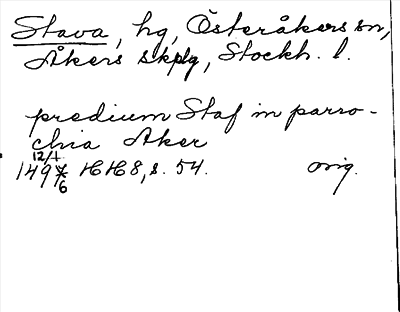 Stava, hg, Österåkers sn,
Åkers skplg, Stockh. l.
predium Staf in parro-
chia Aker
12/1
149 6 HH 8, s. 54. orig.